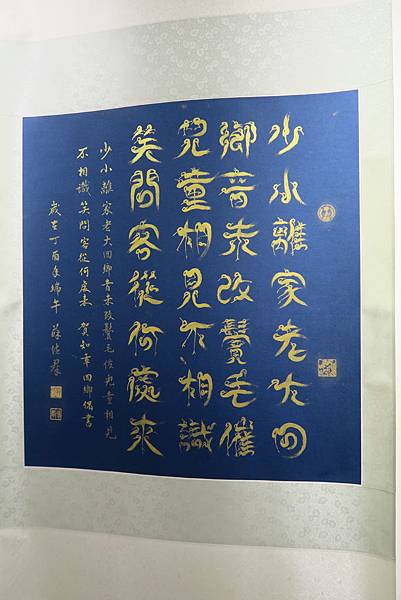 少小離家老大回
鄉音未改鬢毛催
兒童相見不相識
笑問客從何處來
少小離家老大回鄉音未改鬢毛催兒童相見
不相識笑問客從何處來 賀知章回鄉偶書
歲在丁酉年端午